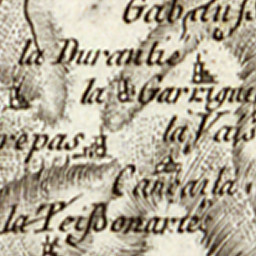 Gabauß
la Durantie
la Garrigue
la Vais
repas
Cancaila
la Peißonarie